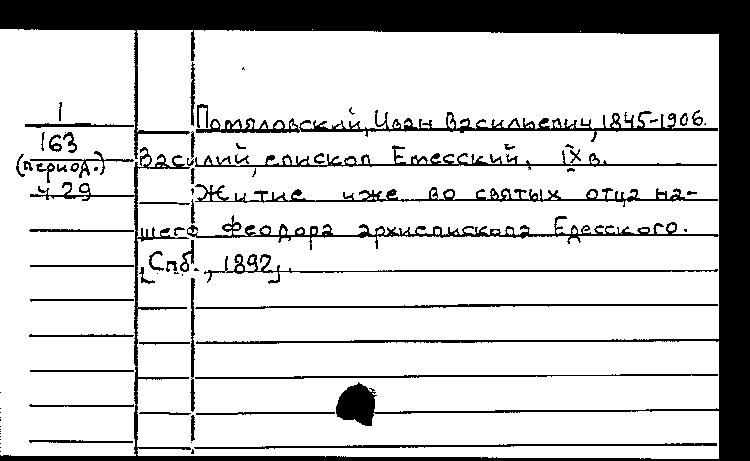 1
163
(период.)
ч. 29
Помяловский, Иван Васильевич, 1845-1906.
Василий, епископ Емесский, IX в.
Житие иже во святых отца на-
шего Феодора архиепископа Едесского.
[Спб., 1892].